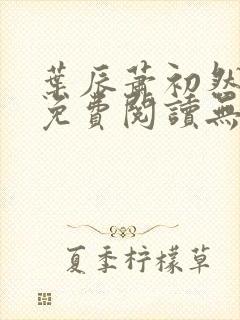 葉辰蕭初然
免費閱讀無
夏季柠檬草